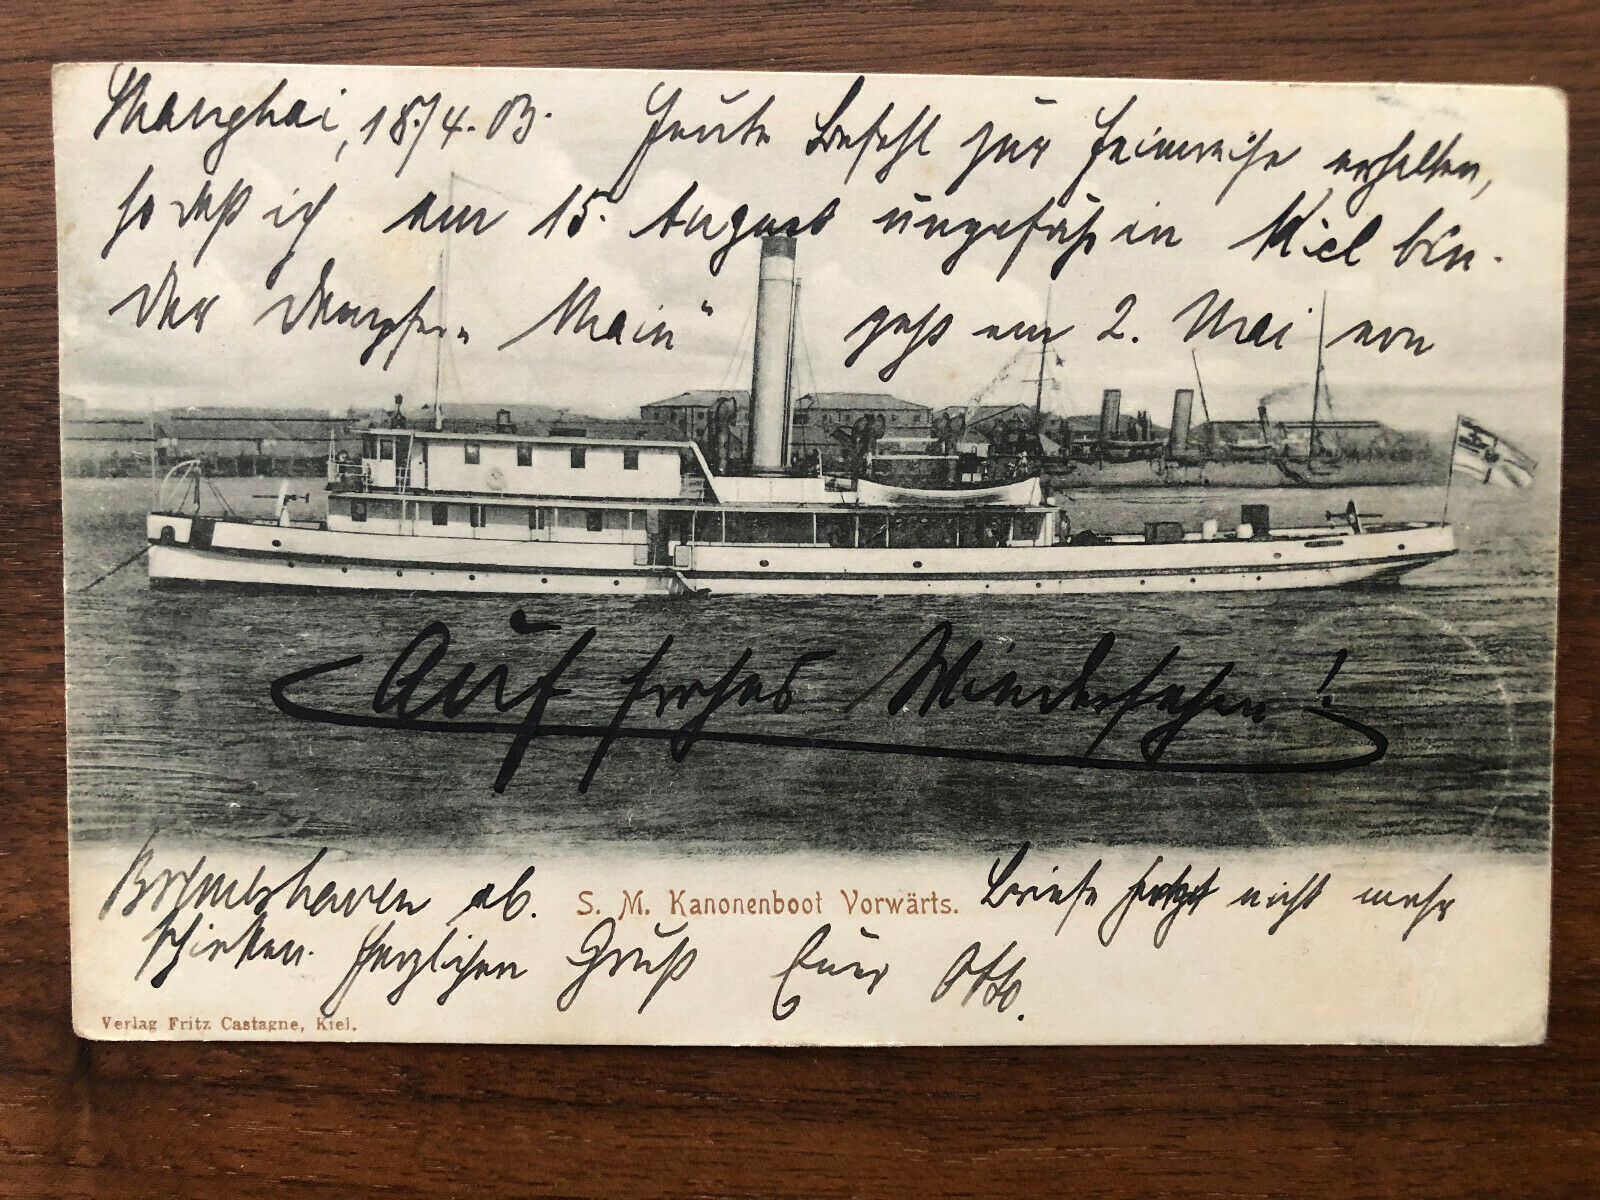 Shanghai, 18/4.03. Heute Befehl zur Heimreise erhalten,
so daß ich am 15. August ungefähr in Kiel bin.
Der Dampfer „Main" geht am 2. Mai von
Auf frohes Wiedersehen!
Bremerhaven ab. S. M. Kanonenboot Vorwärts. Briefe jetzt nicht mehr
schicken. Herzlichen Gruß Euer Otto.
Verlag Fritz Castagne, Kiel.